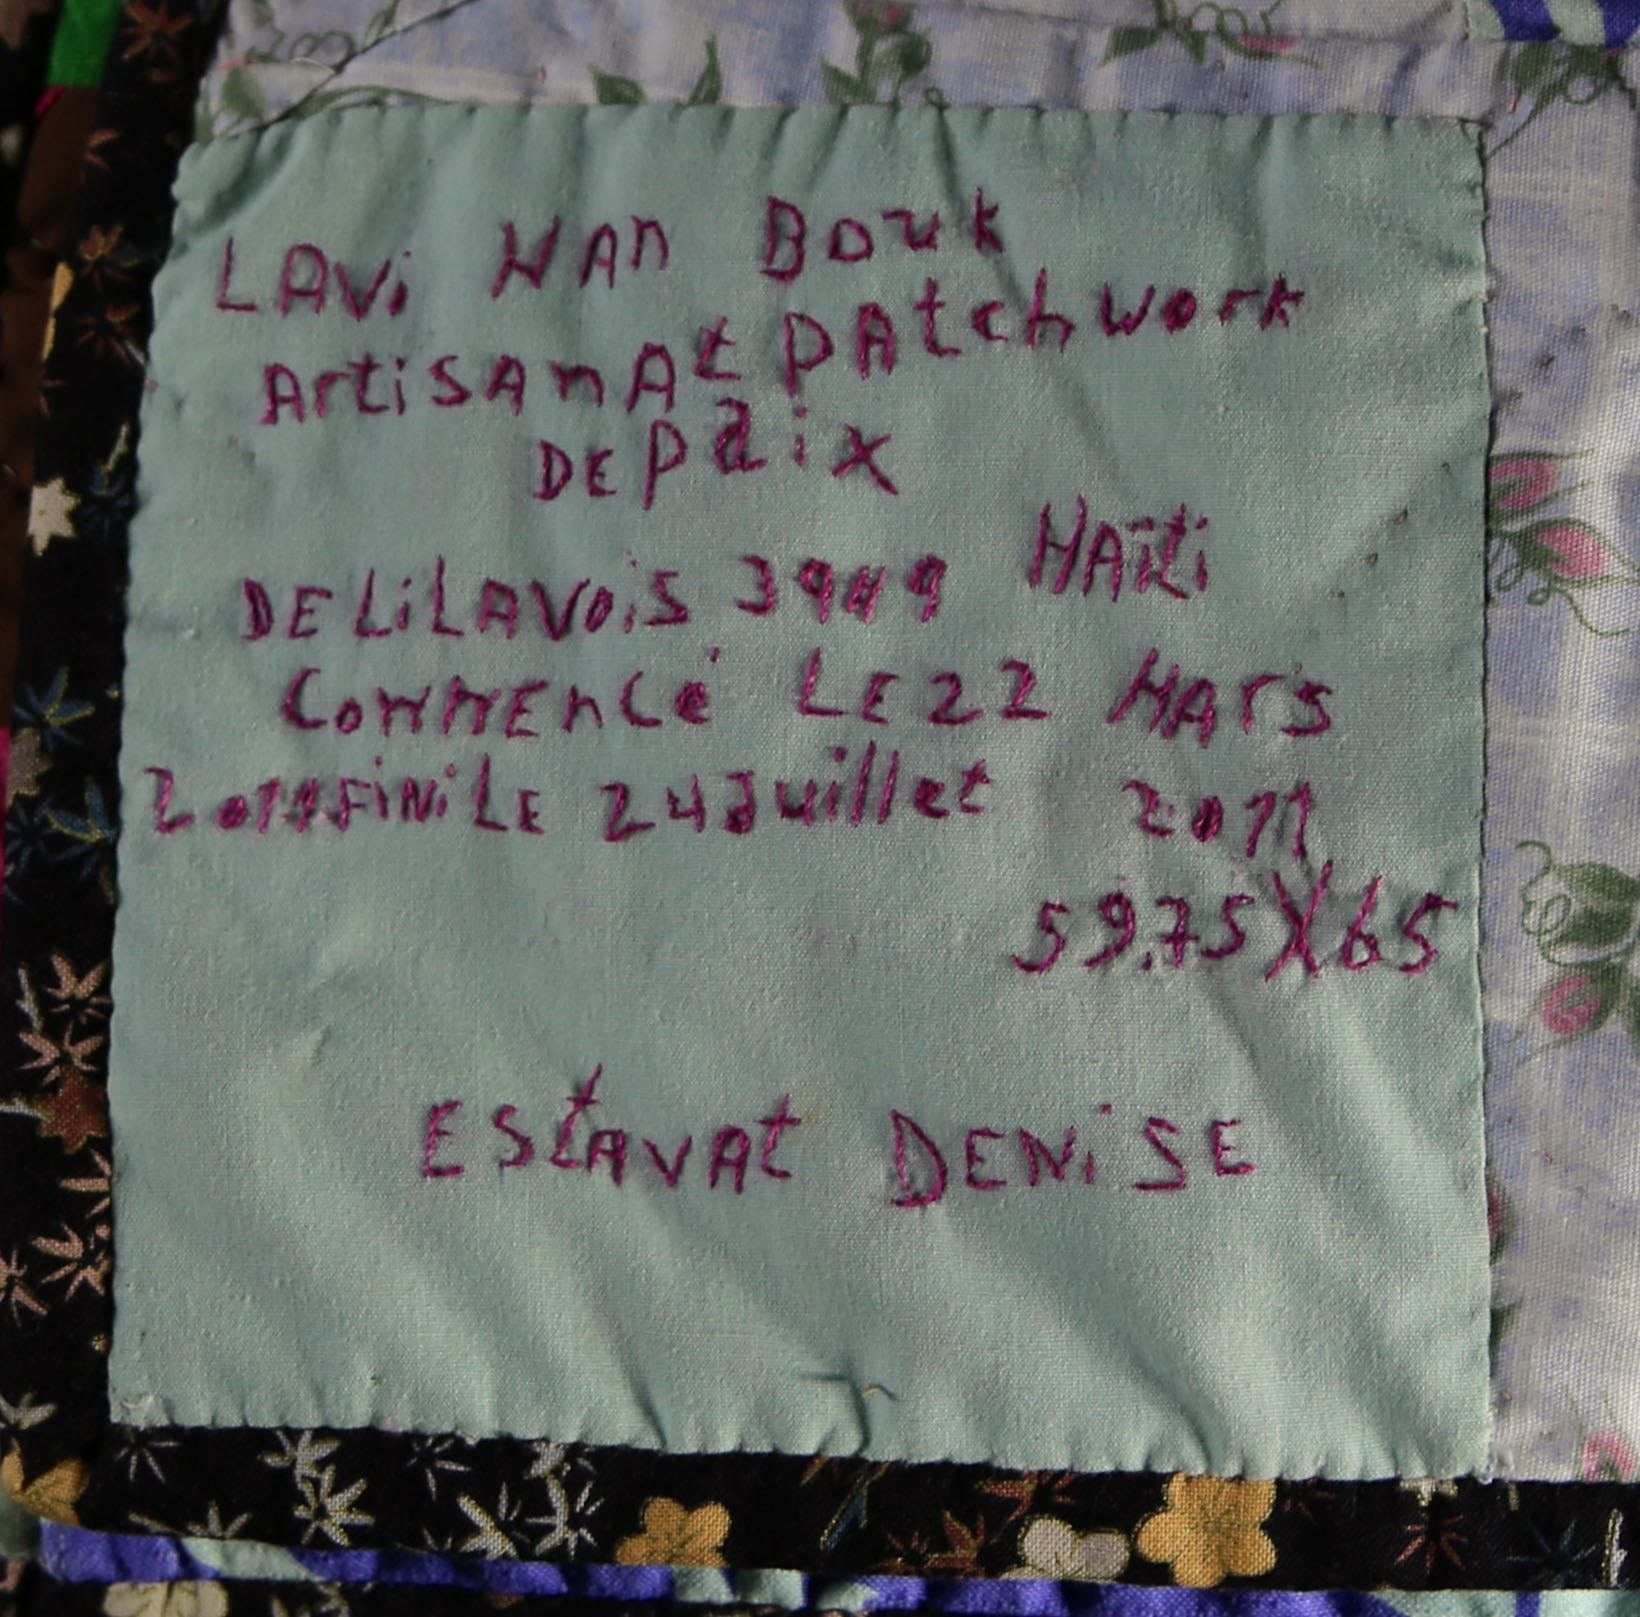 LAVi NAN BOuk
ArtiSAnAt pAtchwork
DE pAix
DELiLAVOiS 3949 HAïti
COMMEncé LE 22 MArS
2011 FiNi LE 24 Juillet 2011
59.75 X 65
EStAVAt DENiSE